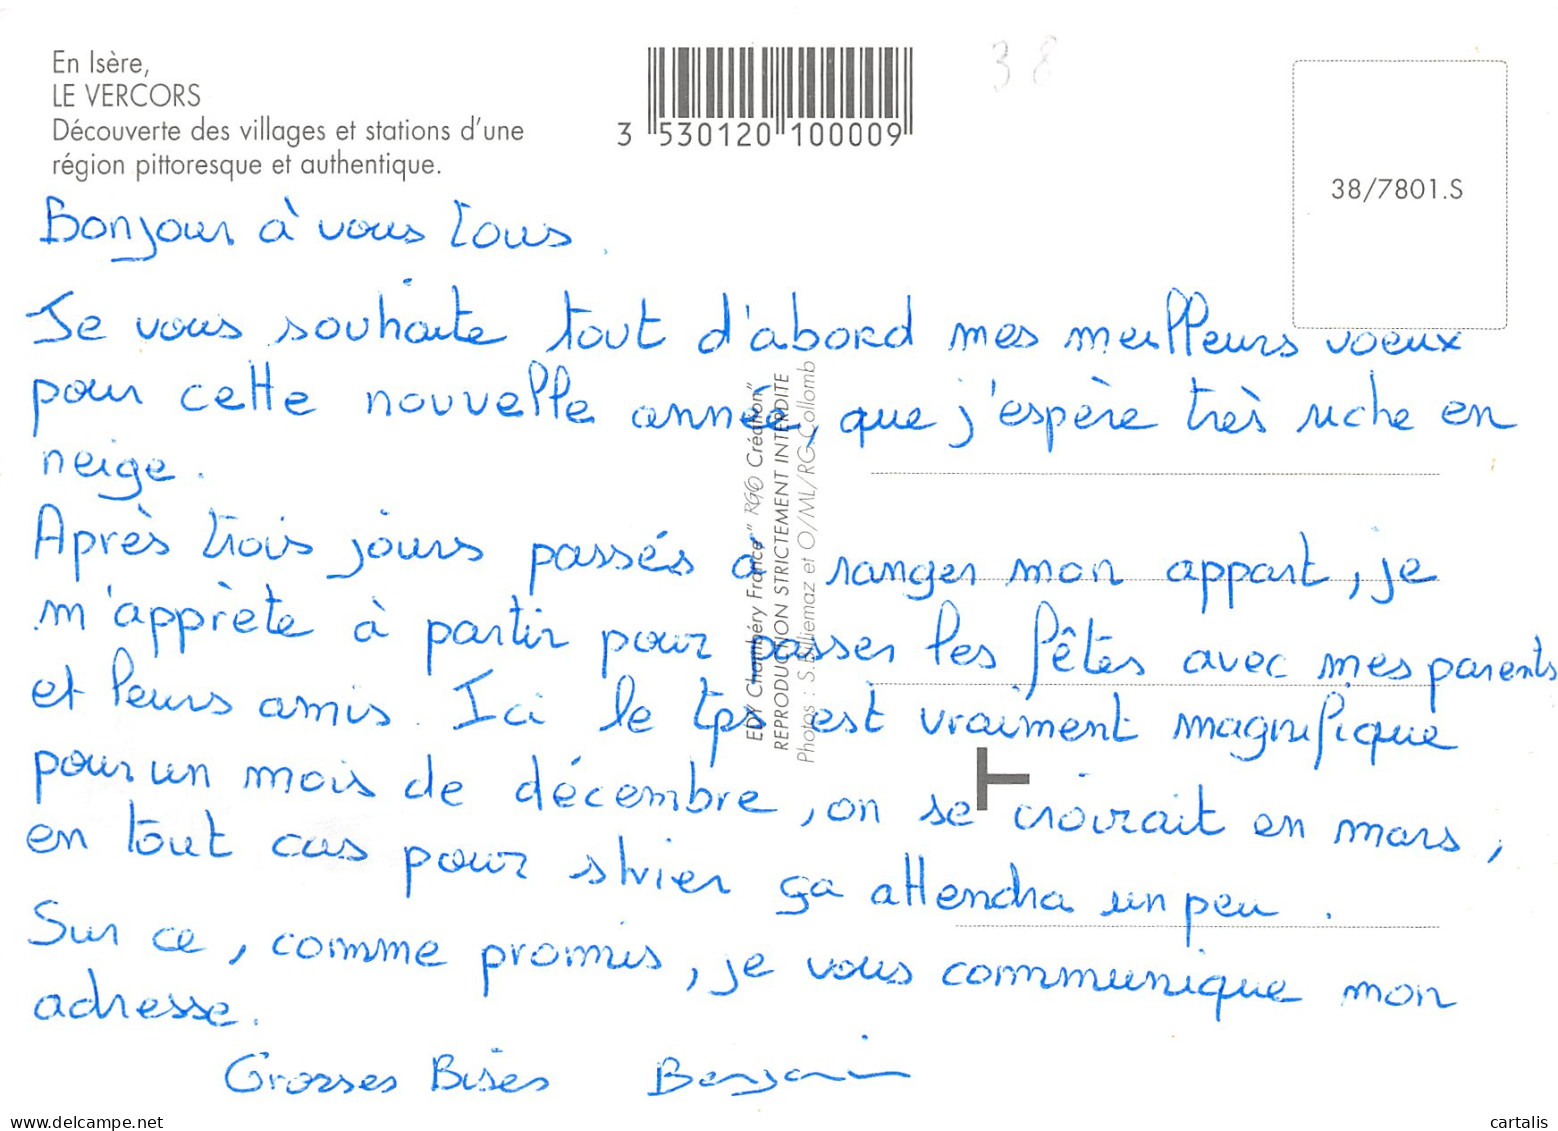 En Isère,
LE VERCORS
Découverte des villages et stations d'une
région pittoresque et authentique.
3 530120 100009
38
38/7801.S
Bonjour à vous tous.
Je vous souhaite tout d'abord mes meilleurs voeux
pour cette nouvelle année, que j'espère très riche en
neige.
Après trois jours passés à ranger mon appart, je
m'apprète à partir pour passer les fêtes avec mes parents
et leurs amis. Ici le tps est vraiment magnifique
pour un mois de décembre, on se croirait en mars,
en tout cas pour skier ça attendra un peu.
Sur ce, comme promis, je vous communique mon
adresse.
Grosses Bises Benjamin
EDY Chambéry France" RGC Création"
REPRODUCTION STRICTEMENT INTERDITE
Photos : S. Billiemaz et O/ML/RG.Collomb
delcampe.net
cartalis